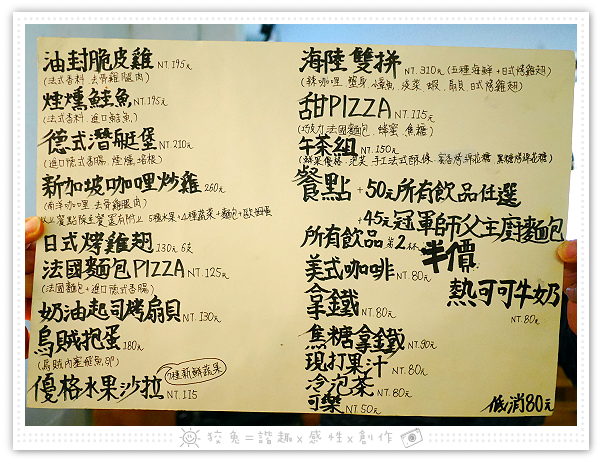 油封脆皮雞 NT.195元
(法式香料 去骨雞腿肉)
煙燻鮭魚 NT.195元
(法式香料.進口鮭魚)
德式潛艇堡 NT.210元
(進口德式香腸,煙燻培根)
新加坡咖哩炒雞 260元
(南洋咖哩 去骨雞腿肉)
以上餐點除主餐富有附上 5種水果+4種蔬菜+麵包+歐姆蛋
日式烤雞翅 130元 6支
法國麵包PIZZA NT.125元
(法國麵包+進口德式香腸)
奶油起司烤扇貝 NT.130元
烏賊抱蛋 180元
(烏賊內塞魷魚卵)
優格水果沙拉 NT.115
7種新鮮蔬果
海陸雙拼 NT.310元 (五種海鮮+日式烤雞翅)
甜PIZZA NT.115元
(巧克力.法國麵包、蜂蜜、焦糖)
午茶組 NT.150元
餐點 +50元所有飲品任選
+45元冠軍師父王廚麵包
所有飲品 第2杯 半價
美式咖啡 NT.80元
熱可可牛奶
NT.80元
拿鐵 NT.80元
焦糖拿鐵 NT.90元
現打果汁 NT.80元
冷泡茶 NT.80元
可樂 NT.50元
低消80元
狡兔=諧趣x感性x創作